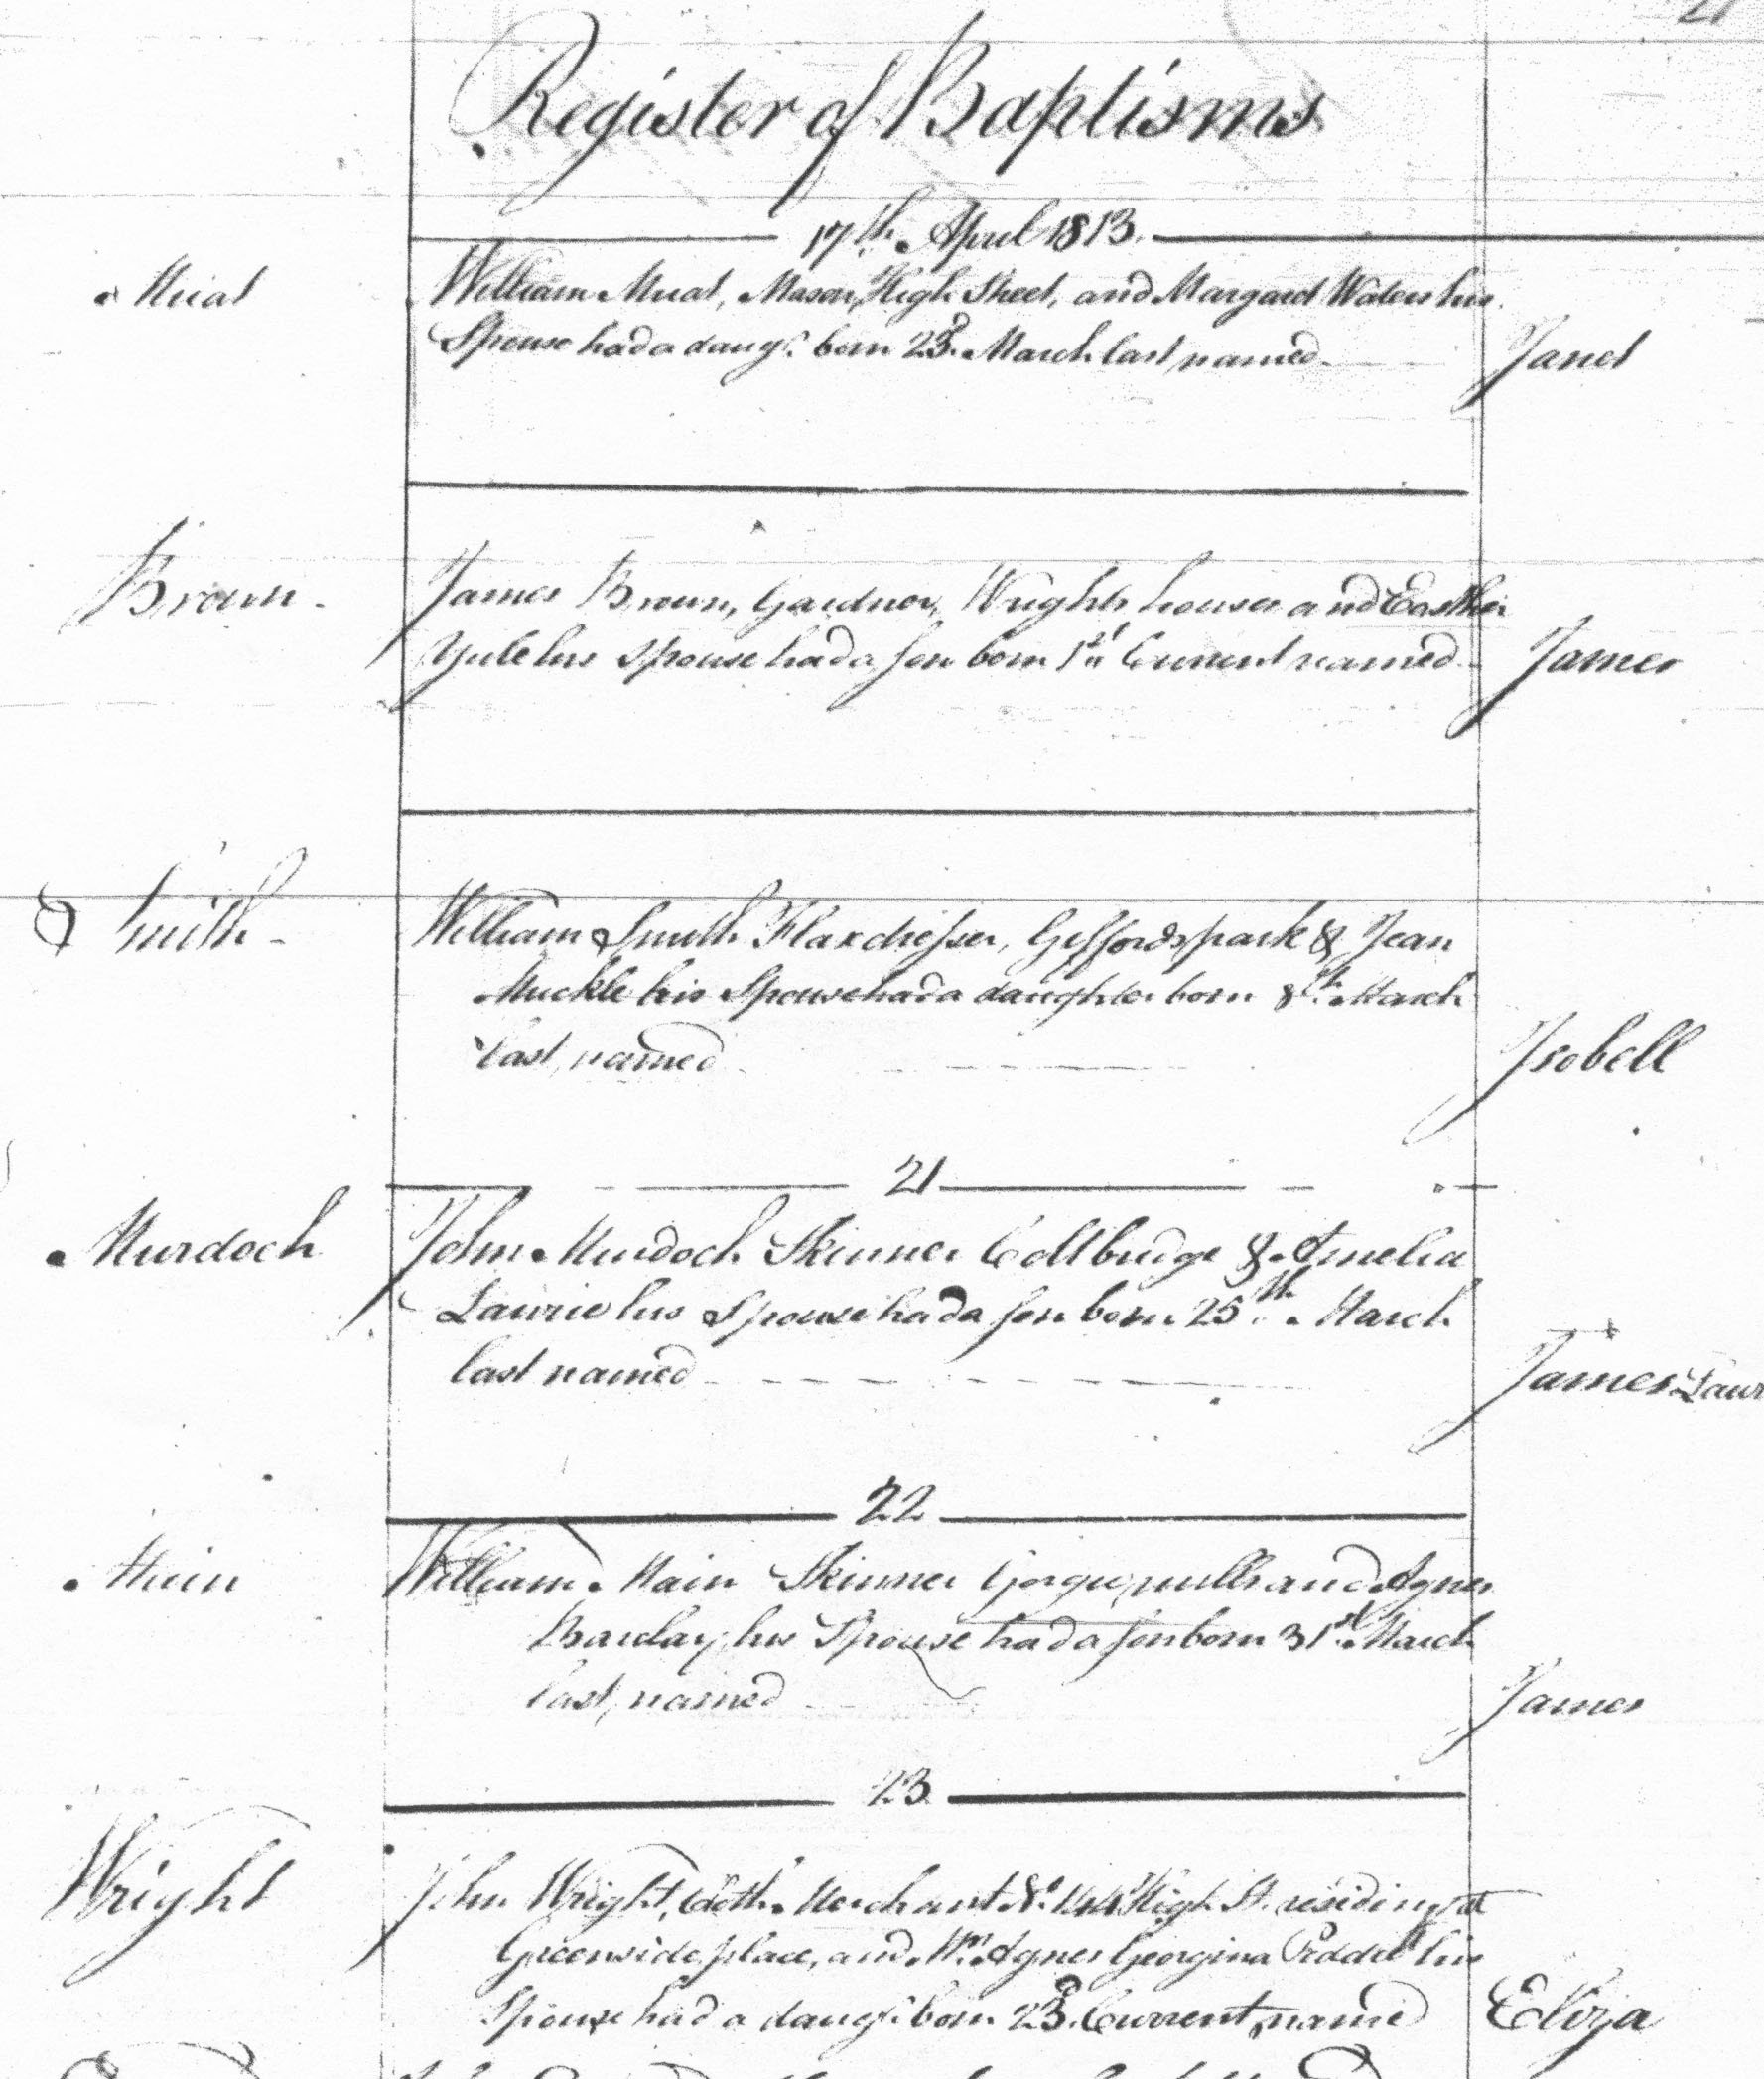 21
Register of Baptisms
17th. April 1813.
Muat
William Muat, Mason, High Street, and Margaret Waters his
Spouse had a daugr. born 23d. March last named
Janet
Brown
James Brown, Gardner, Wrights houses and Easther
Yule his Spouse had a son born 1st Current named
James
Smith
William Smith Flaxdresser, Giffords park & Jean
Muckle his Spouse had a daughter born 8th. March
last, named
Isobell
21
Murdoch
John Murdoch Skinner Coltbridge & Amelia
Lawrie his Spouse had a son born 25th. March
last named
James Lawr
22
Main
William Main Skinner Gorgie mills and Agnes
Barclay his Spouse had a son born 31st. March
last, named
James
23
Wright
John Wright, Cloth Merchant No. 144 High St. residing at
Greenside place, and Mrs. Agnes Georgina his
Spouse had a daugr. born 23d. Current, named
Eliza